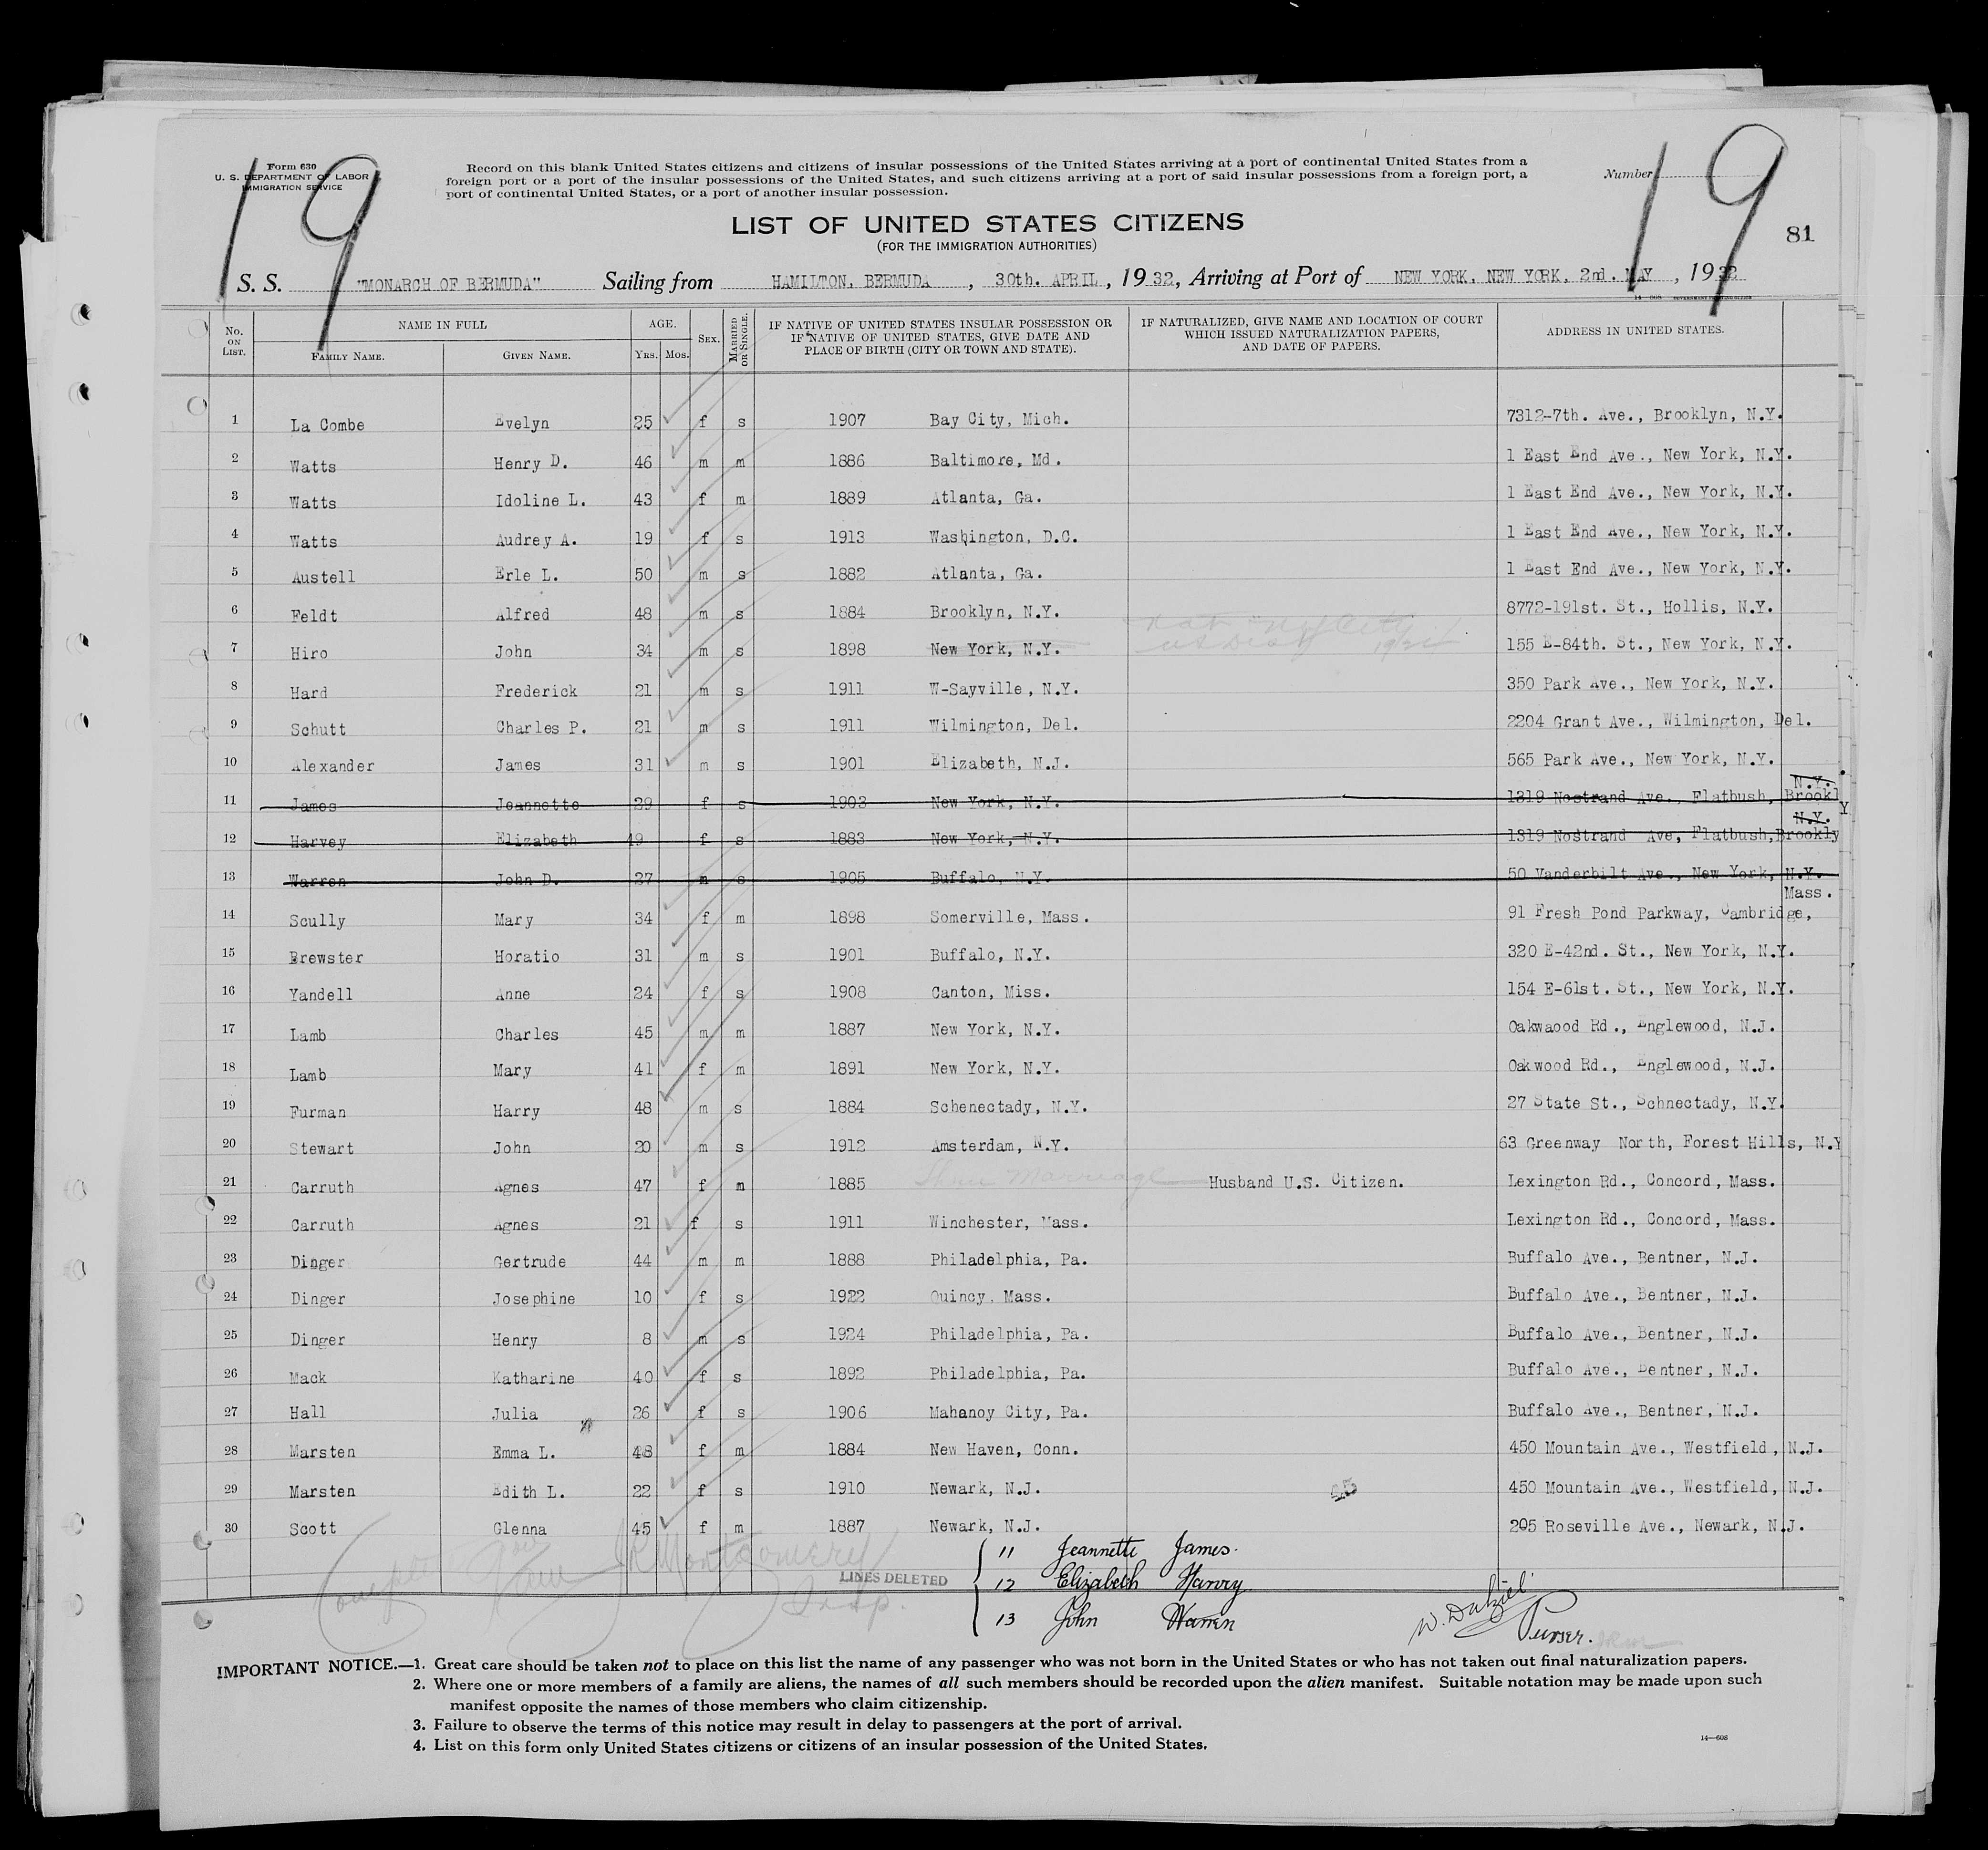 19
19
Form 630
U. S. DEPARTMENT OF LABOR
IMMIGRATION SERVICE
Record on this blank United States citizens and citizens of insular possessions of the United States arriving at a port of continental United States from a
foreign port or a port of the insular possessions of the United States, and such citizens arriving at a port of said insular possessions from a foreign port, a
port of continental United States, or a port of another insular possession.
Number
81
LIST OF UNITED STATES CITIZENS
(FOR THE IMMIGRATION AUTHORITIES)
S. S. "MONARCH OF BERMUDA" Sailing from HAMILTON, BERMUDA, 30th. APRIL, 1932, Arriving at Port of NEW YORK, NEW YORK, 2nd. MAY, 1932
No. ON LIST. NAME IN FULL FAMILY NAME. GIVEN NAME. AGE. YRS. MOS. SEX. MARRIED OR SINGLE. IF NATIVE OF UNITED STATES INSULAR POSSESSION OR IF NATIVE OF UNITED STATES, GIVE DATE AND PLACE OF BIRTH (CITY OR TOWN AND STATE). IF NATURALIZED, GIVE NAME AND LOCATION OF COURT WHICH ISSUED NATURALIZATION PAPERS, AND DATE OF PAPERS. ADDRESS IN UNITED STATES.
1 La Combe Evelyn 25 f s 1907 Bay City, Mich. 7312-7th. Ave., Brooklyn, N.Y.
2 Watts Henry D. 46 m m 1886 Baltimore, Md. 1 East End Ave., New York, N.Y.
3 Watts Idoline L. 43 f m 1889 Atlanta, Ga. 1 East End Ave., New York, N.Y.
4 Watts Audrey A. 19 f s 1913 Washington, D.C. 1 East End Ave., New York, N.Y.
5 Austell Erle L. 50 m s 1882 Atlanta, Ga. 1 East End Ave., New York, N.Y.
6 Feldt Alfred 48 m s 1884 Brooklyn, N.Y. 8772-191st. St., Hollis, N.Y.
7 Hiro John 34 m s 1898 New York, N.Y. 155 E-84th. St., New York, N.Y.
8 Hard Frederick 21 m s 1911 W-Sayville, N.Y. 350 Park Ave., New York, N.Y.
9 Schutt Charles P. 21 m s 1911 Wilmington, Del. 2204 Grant Ave., Wilmington, Del.
10 Alexander James 31 m s 1901 Elizabeth, N.J. 565 Park Ave., New York, N.Y.
11 James Jeannette 29 f s 1903 New York, N.Y. 1319 Nostrand Ave., Flatbush, Brookl N.Y.
12 Harvey Elizabeth 49 f s 1883 New York, N.Y. 1319 Nostrand Ave, Flatbush, Brookly N.Y.
13 Warren John D. 27 m s 1905 Buffalo, N.Y. 50 Vanderbilt Ave., New York, N.Y.
14 Scully Mary 34 f m 1898 Somerville, Mass. 91 Fresh Pond Parkway, Cambridge, Mass.
15 Brewster Horatio 31 m s 1901 Buffalo, N.Y. 320 E-42nd. St., New York, N.Y.
16 Yandell Anne 24 f s 1908 Canton, Miss. 154 E-61st. St., New York, N.Y.
17 Lamb Charles 45 m m 1887 New York, N.Y. Oakwaood Rd., Englewood, N.J.
18 Lamb Mary 41 f m 1891 New York, N.Y. Oakwood Rd., Englewood, N.J.
19 Furman Harry 48 m s 1884 Schenectady, N.Y. 27 State St., Schnectady, N.Y.
20 Stewart John 20 m s 1912 Amsterdam, N.Y. 63 Greenway North, Forest Hills, N.Y
21 Carruth Agnes 47 f m 1885 Thru Marriage Husband U.S. Citizen. Lexington Rd., Concord, Mass.
22 Carruth Agnes 21 f s 1911 Winchester, Mass. Lexington Rd., Concord, Mass.
23 Dinger Gertrude 44 m m 1888 Philadelphia, Pa. Buffalo Ave., Bentner, N.J.
24 Dinger Josephine 10 f s 1922 Quincy, Mass. Buffalo Ave., Bentner, N.J.
25 Dinger Henry 8 m s 1924 Philadelphia, Pa. Buffalo Ave., Bentner, N.J.
26 Mack Katharine 40 f s 1892 Philadelphia, Pa. Buffalo Ave., Bentner, N.J.
27 Hall Julia 26 f s 1906 Mahanoy City, Pa. Buffalo Ave., Bentner, N.J.
28 Marsten Emma L. 48 f m 1884 New Haven, Conn. 450 Mountain Ave., Westfield, N.J.
29 Marsten Edith L. 22 f s 1910 Newark, N.J. 450 Mountain Ave., Westfield, N.J.
30 Scott Glenna 45 f m 1887 Newark, N.J. 205 Roseville Ave., Newark, N.J.
JR Montgomery
Insp.
LINES DELETED
11 Jeannette James.
12 Elizabeth Harvey
13 John Warren
W. Dalziel
Purser.
IMPORTANT NOTICE.—1. Great care should be taken not to place on this list the name of any passenger who was not born in the United States or who has not taken out final naturalization papers.
2. Where one or more members of a family are aliens, the names of all such members should be recorded upon the alien manifest. Suitable notation may be made upon such
manifest opposite the names of those members who claim citizenship.
3. Failure to observe the terms of this notice may result in delay to passengers at the port of arrival.
4. List on this form only United States citizens or citizens of an insular possession of the United States.
14—608